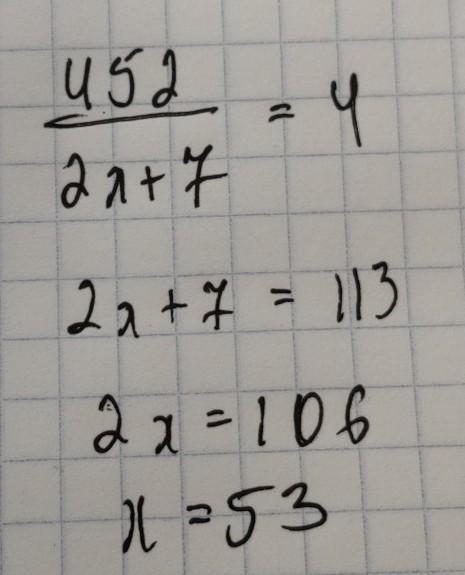 452
2x+7 = 4
2x+7 = 113
2x=106
x=53